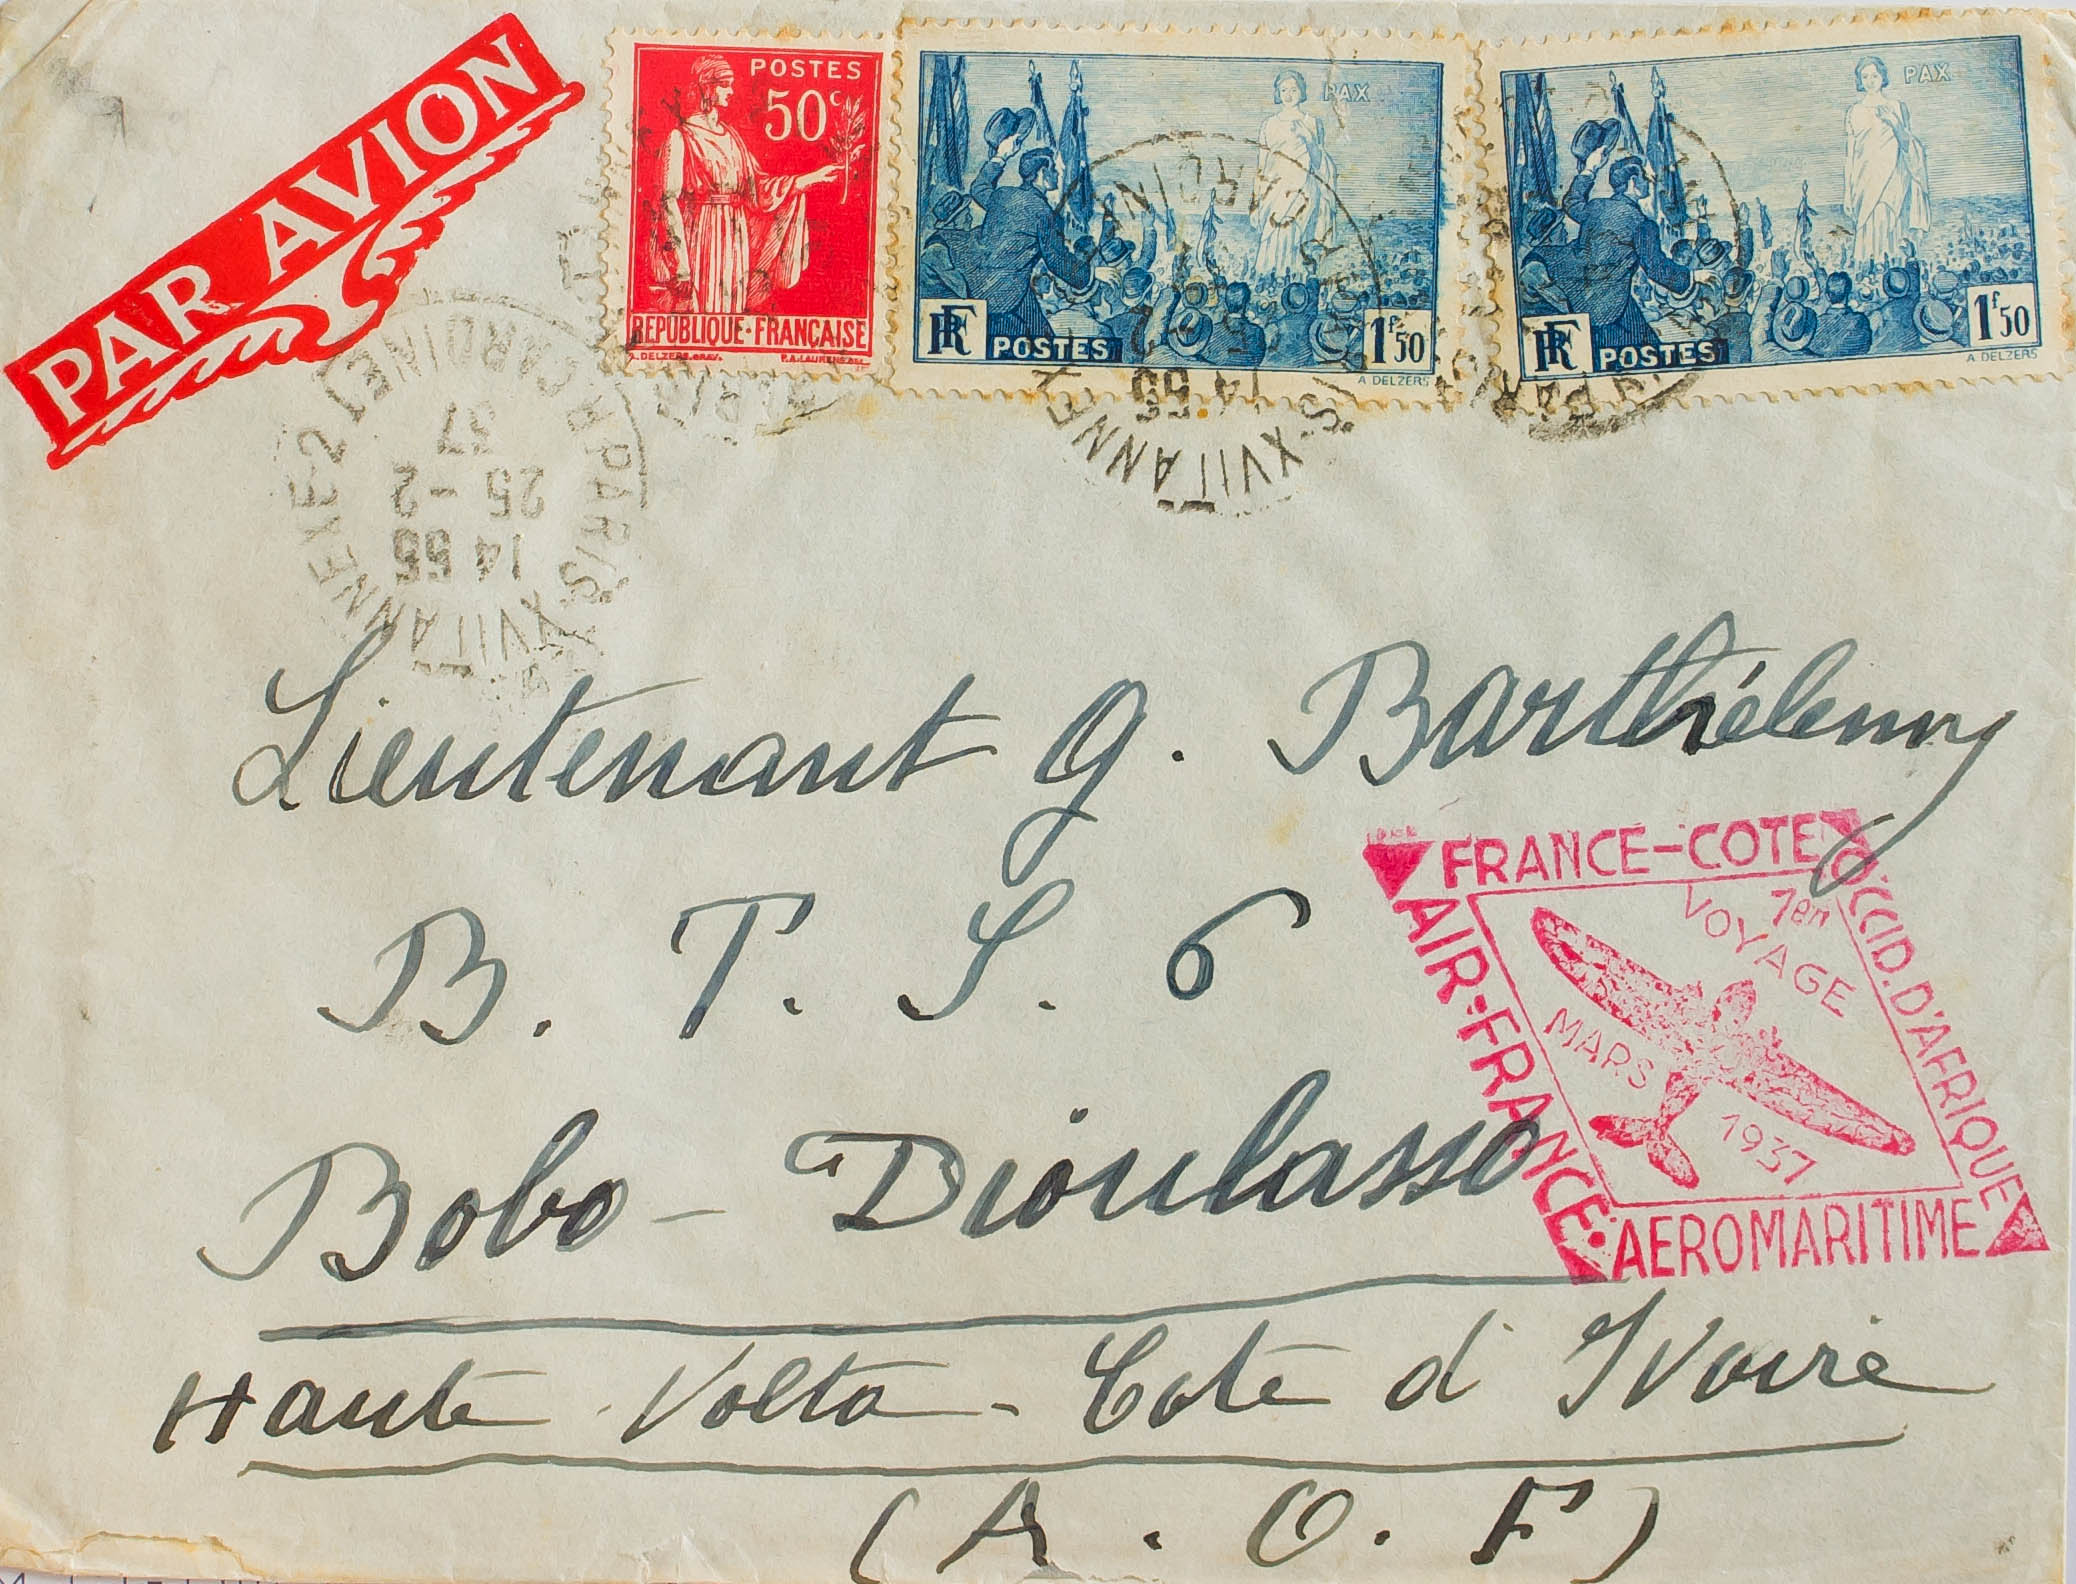 PAR AVION
POSTES
50c
REPUBLIQUE·FRANÇAISE
A.DELZERS.GRAV.
PAX
RF POSTES
1f50
A DELZERS
PAX
RF POSTES
1f50
A DELZERS
PARIS XVII ANNEXE-2
14 55
25-2
37
XVII ANNEX
14 55
Lieutenant G. Barthélemy
B. T. S. 6
Bobo-Dioulasso
Haute Volta - Cote d'Ivoire
(A.O.F)
FRANCE-COTE OCCID. D'AFRIQUE
AIR-FRANCE·AEROMARITIME
1er VOYAGE
MARS 1937